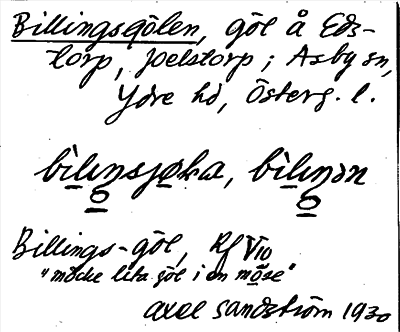 Billingsgölen, göl å Eds-
torp, Joelstorp; Asby sn,
Ydre hd, Österg. l.
bìlıŋsjøka, bìlıŋən
Billings-göl, Rf V10
"möcke lita göl i en möse"
Axel Sandström 1930